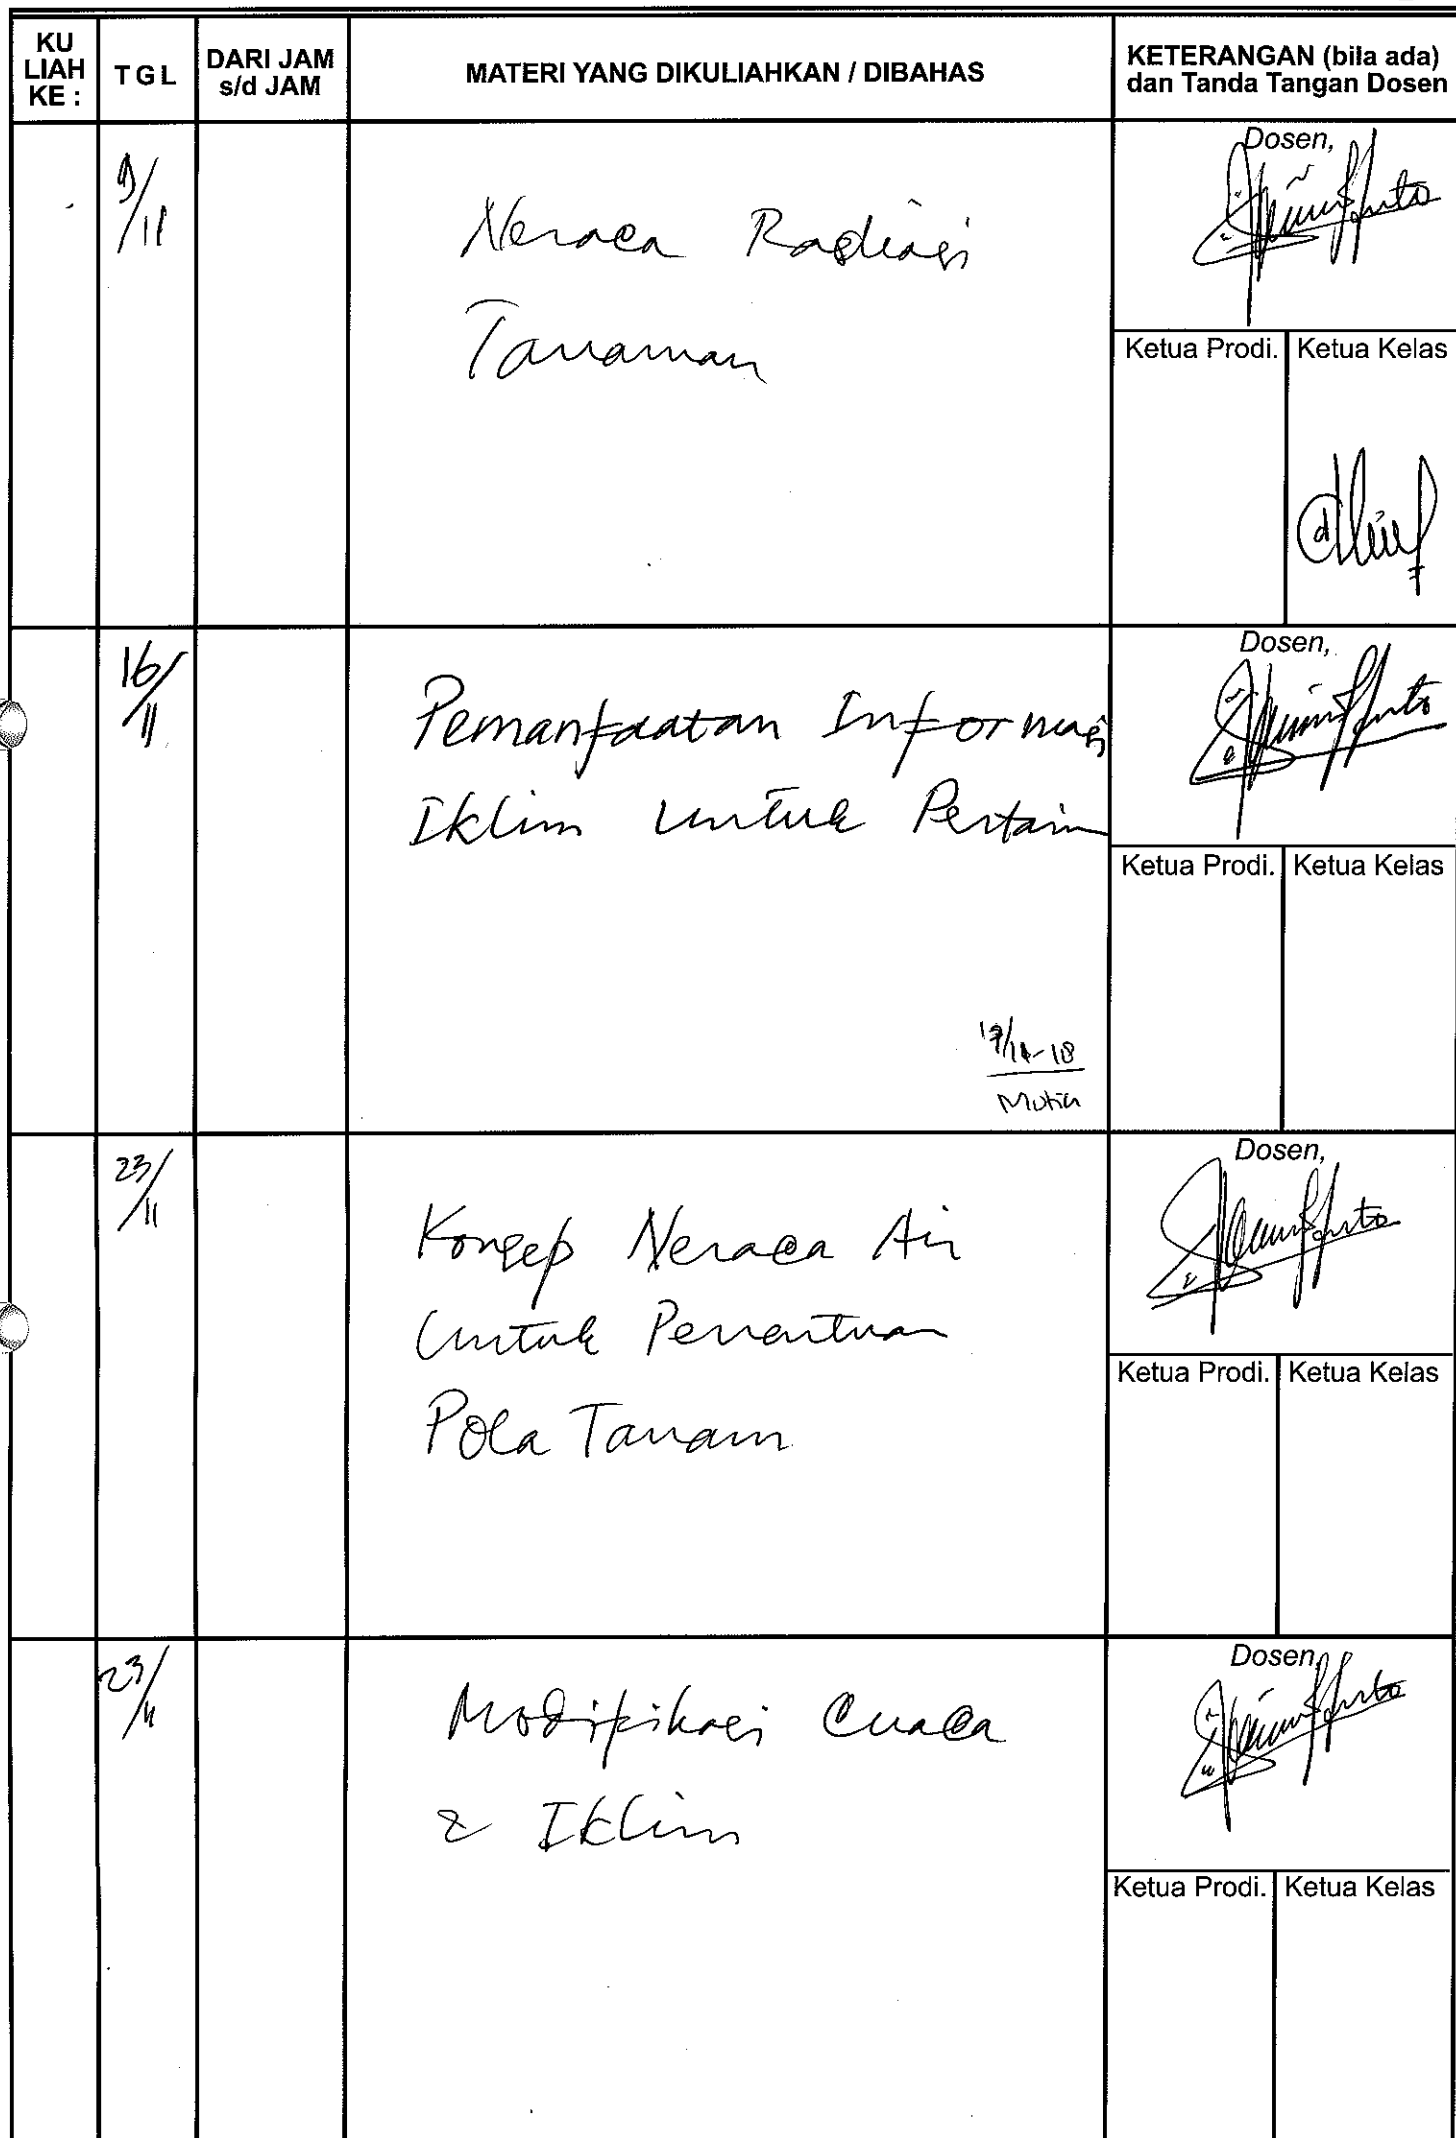 KU LIAH KE :
TGL
DARI JAM s/d JAM
MATERI YANG DIKULIAHKAN / DIBAHAS
KETERANGAN (bila ada) dan Tanda Tangan Dosen
9/11
Neraca Radiasi
Tanaman
Dosen,
Ketua Prodi.
Ketua Kelas
16/11
Pemanfaatan Informasi
Iklim untuk Pertain
Dosen,
Ketua Prodi.
Ketua Kelas
Mutia
23/11
Konsep Neraca Air
Untuk Penentuan
Pola Tanam
Dosen,
Ketua Prodi.
Ketua Kelas
23/11
Modifikasi Cuaca
& Iklim
Dosen,
Ketua Prodi.
Ketua Kelas